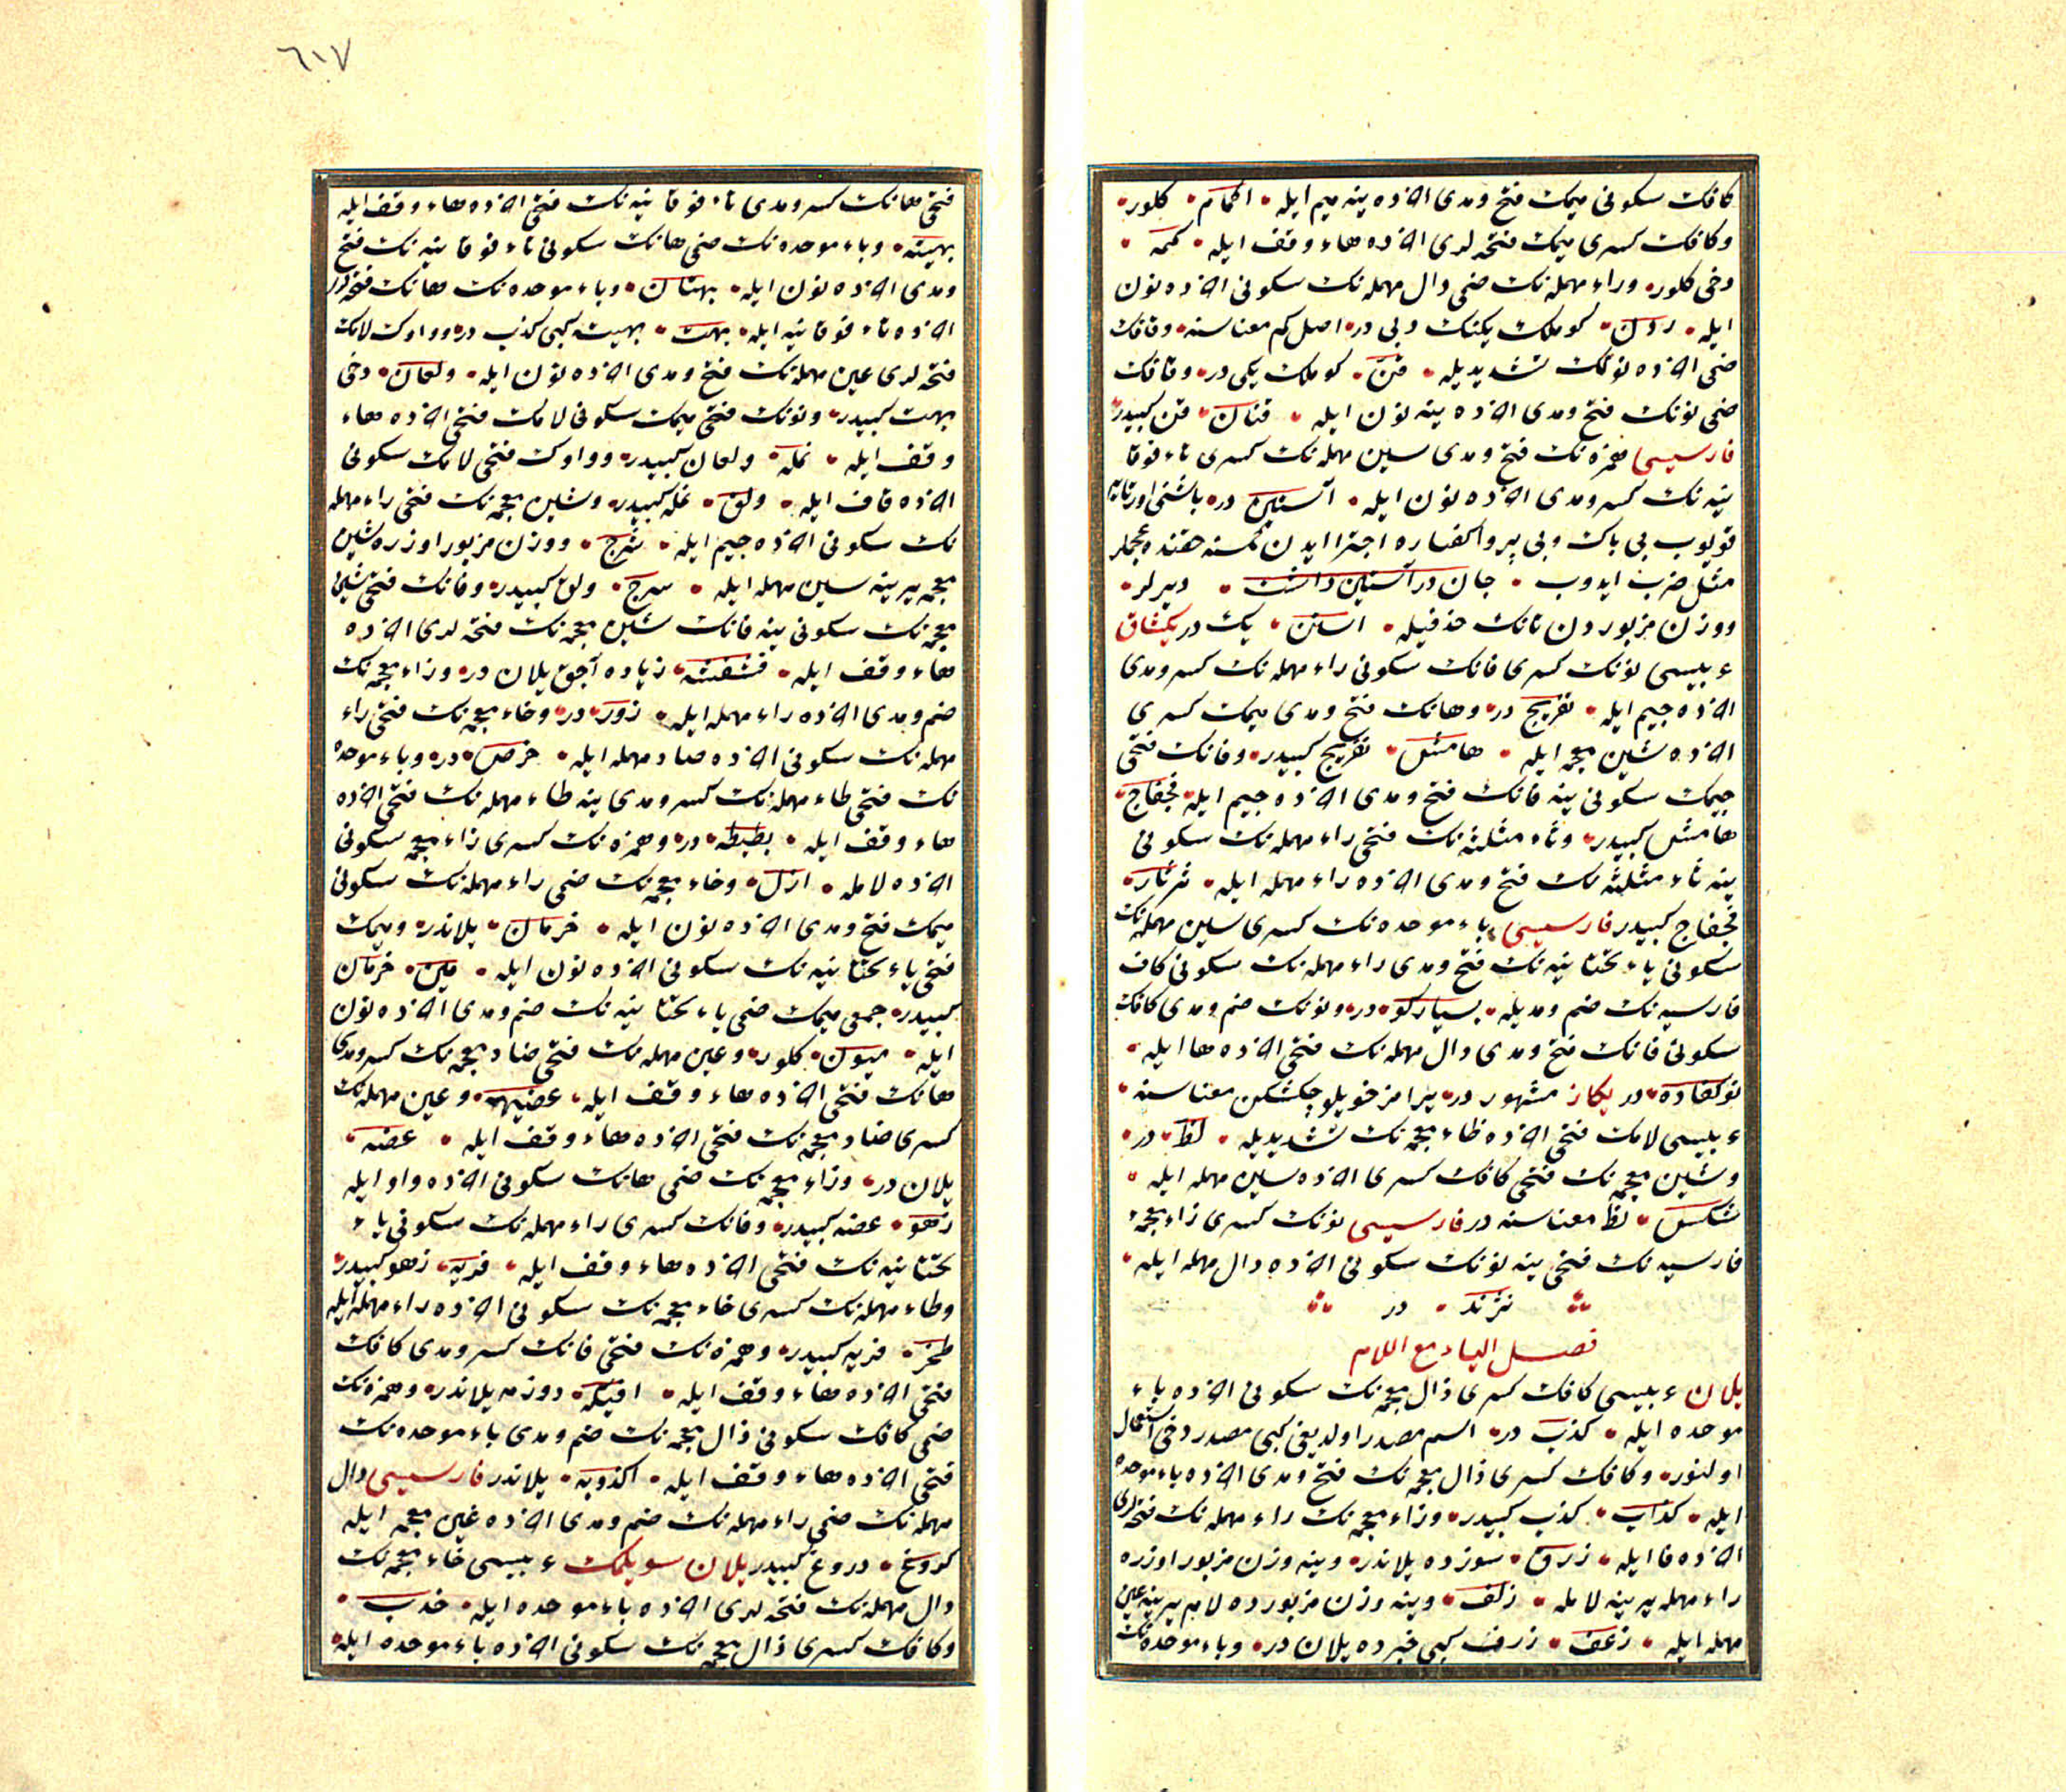 كافك سكونی ميمك فتح ومدی آخرده ينه ميم ايله اكمام كلور
وكافك كسری ميمك فتحه لری آخرده هاء وقف ايله كمه
دخی كلور وراء مهمله نك ضمی دال مهمله نك سكونی آخرده نون
ايله ردن كوملك يكنك دبی در اصل كم معناسنه وقافك
ضمی آخرده نونك تشديديله قن كوملك يكی در وقافك
ضمی نونك فتح ومدی آخرده ينه نون ايله قنان قن كبيدر
فارسيسی همزه نك فتح ومدی سين مهمله نك كسری تاء فوقا
نيه نك كسر ومدی آخرده نون ايله آستين در باشنی اورتايه
قويوب بی باك وبی پروا كفساره اجترا ايدن كمسنه حقنده عجملر
مثل ضرب ايدوب جان در آستين داشت ديرلر
ووزن مزبوردن تانك حذفيله اسن يك در يكشاق
عربيسی نونك كسری فانك سكونی راء مهمله نك كسر ومدی
آخرده جيم ايله نفريج در وهانك فتح ومدی ميمك كسری
آخرده شين معجمه ايله هامش نفريج كبيدر وفانك فتحی
جيمك سكونی ينه فانك فتح ومدی آخرده جيم ايله فجفاج
هامش كبيدر وثاء مثلثه نك فتحی راء مهمله نك سكونی
ينه ثاء مثلثه نك فتح ومدی آخرده راء مهمله ايله ثرثار
فجفاج كبيدر فارسيسی باء موحده نك كسری سين مهمله نك
سكونی ياء تحتانيه نك فتح ومدی راء مهمله نك سكونی كاف
فارسيه نك ضم ومديله بسياركو در ونونك ضم ومدی كافك
سكونی فانك فتح ومدی دال مهمله نك فتحی آخرده ها ايله
نوكفاده در يكاز مشهور در يرامز خويلو چكشكن معناسنه
عربيسی لامك فتحی آخرده ظاء معجمه نك تشديديله لظ در
وشين معجمه نك فتحی كافك كسری آخرده سين مهمله ايله
شكس لظ معناسنه در فارسيسی نونك كسری زاء معجمه
فارسيه نك فتحی ينه نونك سكونی آخرده دال مهمله ايله
نژند در
فصل الياء مع اللام
يلان عربيسی كافك كسری ذال معجمه نك سكونی آخرده باء
موحده ايله كذب در اسم مصدر اولديغی كبی مصدر دخی استعمال
اولنور وكافك كسری ذال معجمه نك فتح ومدی آخرده باء موحده
ايله كذاب كذب كبيدر وزاء معجمه نك راء مهمله نك فتحه لری
آخرده فا ايله زرف سوزده يلاندر وينه وزن مزبور اوزره
راء مهمله يرينه لامله زلف وينه وزن مزبورده لام يرينه عين
مهمله ايله زعف زرف كبی خبرده يلان در وباء موحده نك
٦١٧
فتحی هانك كسر ومدی تاء فوقانيه نك فتحی آخرده هاء وقف ايله
بهيته وباء موحده نك ضمی هانك سكونی تاء فوقانيه نك فتح
ومدی آخرده نون ايله بهتان وباء موحده نك هانك فتحه لری
آخرده تاء فوقانيه ايله بهت بهيت كبی كذب در وواوك لامك
فتحه لری عين مهمله نك فتح ومدی آخرده نون ايله ولعان دخی
بهت كبيدر ونونك فتحی ميمك سكونی لامك فتحی آخرده هاء
وقف ايله نمله ولعان كبيدر وواوك فتحی لامك سكونی
آخرده قاف ايله ولق نمله كبيدر وشين معجمه نك فتحی راء مهمله
نك سكونی آخرده جيم ايله شرج ووزن مزبور اوزره شين
معجمه يرينه سين مهمله ايله سرج ولق كبيدر وفانك فتحی شين
معجمه نك سكونی ينه فانك شين معجمه نك فتحه لری آخرده
هاء وقف ايله فشفشه زياده آجق يلان در وزاء معجمه نك
ضم ومدی آخرده راء مهمله ايله زور در وخاء معجمه نك فتحی راء
مهمله نك سكونی آخرده صاد مهمله ايله خرص در وباء موحده
نك فتحی طاء مهمله نك كسر ومدی ينه طاء مهمله نك فتحی آخرده
هاء وقف ايله بطيطه در وهمزه نك كسری زاء معجمه سكونی
آخرده لامله ازل وخاء معجمه نك ضمی راء مهمله نك سكونی
ميمك فتح ومدی آخرده نون ايله خرمان يلاندر وميمك
فتحی ياء تحتانيه نك سكونی آخرده نون ايله مين خرمان
كبيدر جمعی ميمك ضمی ياء تحتانيه نك ضم ومدی آخرده نون
ايله ميون كلور وعين مهمله نك فتحی ضاد معجمه نك كسر ومدی
هانك فتحی آخرده هاء وقف ايله عضيهه وعين مهمله نك
كسری ضاد معجمه نك فتحی آخرده هاء وقف ايله عضه
يلان در وزاء معجمه نك ضمی هانك سكونی آخرده واو ايله
زهو عضه كبيدر وفانك كسری راء مهمله نك سكونی ياء
تحتانيه نك فتحی آخرده هاء وقف ايله فريه زهو كبيدر
وطاء مهمله نك كسری خاء معجمه نك سكونی آخرده راء مهمله ايله
طخر فريه كبيدر وهمزه نك فتحی فانك كسر ومدی كافك
فتحی آخرده هاء وقف ايله افيكه دوزمه يلاندر وهمزه نك
ضمی كافك سكونی ذال معجمه نك ضم ومدی باء موحده نك
فتحی آخرده هاء وقف ايله اكذوبه يلاندر فارسيسی دال
مهمله نك ضمی راء مهمله نك ضم ومدی آخرده غين معجمه ايله
دروغ كبيدر يلان سويلمك عربيسی خاء معجمه نك
دال مهمله نك فتحه لری آخرده باء موحده ايله خدب
وكافك كسری ذال معجمه نك سكونی آخرده باء موحده ايله